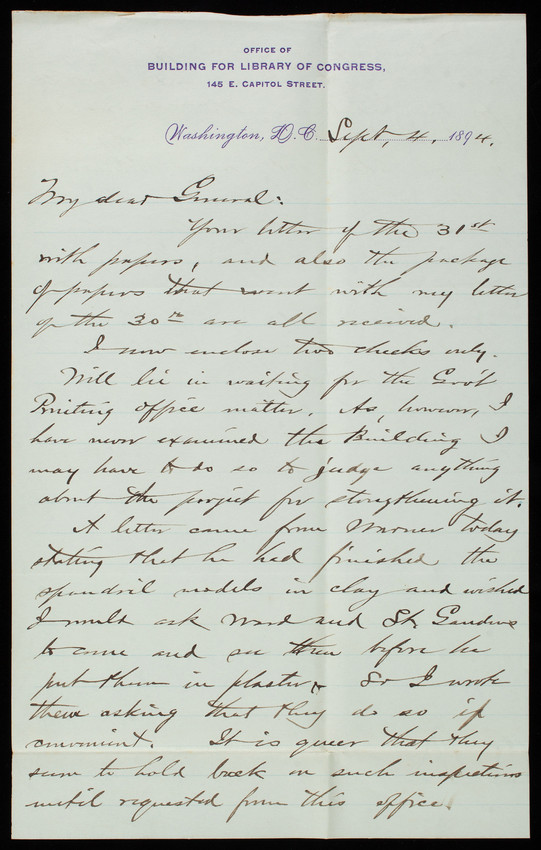 OFFICE OF
BUILDING FOR LIBRARY OF CONGRESS,
145 E. CAPITOL STREET.
Washington, D.C. Sept. 4. 1894.
My dear General:
Your letter of the 31st
with papers, and also the package
of papers that went with my letter
of the 30th are all received.
I now enclose two checks only.
Will lie in waiting for the Gov't
Printing Office matter. As, however, I
have never examined the Building I
may have to do so to judge anything
about the project for strengthening it.
A letter came from Warner today
stating that he had finished the
spandril models in clay and wished
I would ask Ward and St. Gaudens
to come and see them before he
put them in plaster. So I wrote
them asking that they do so if
convenient. It is queer that they
seem to hold back on such inspections
until requested from this office.